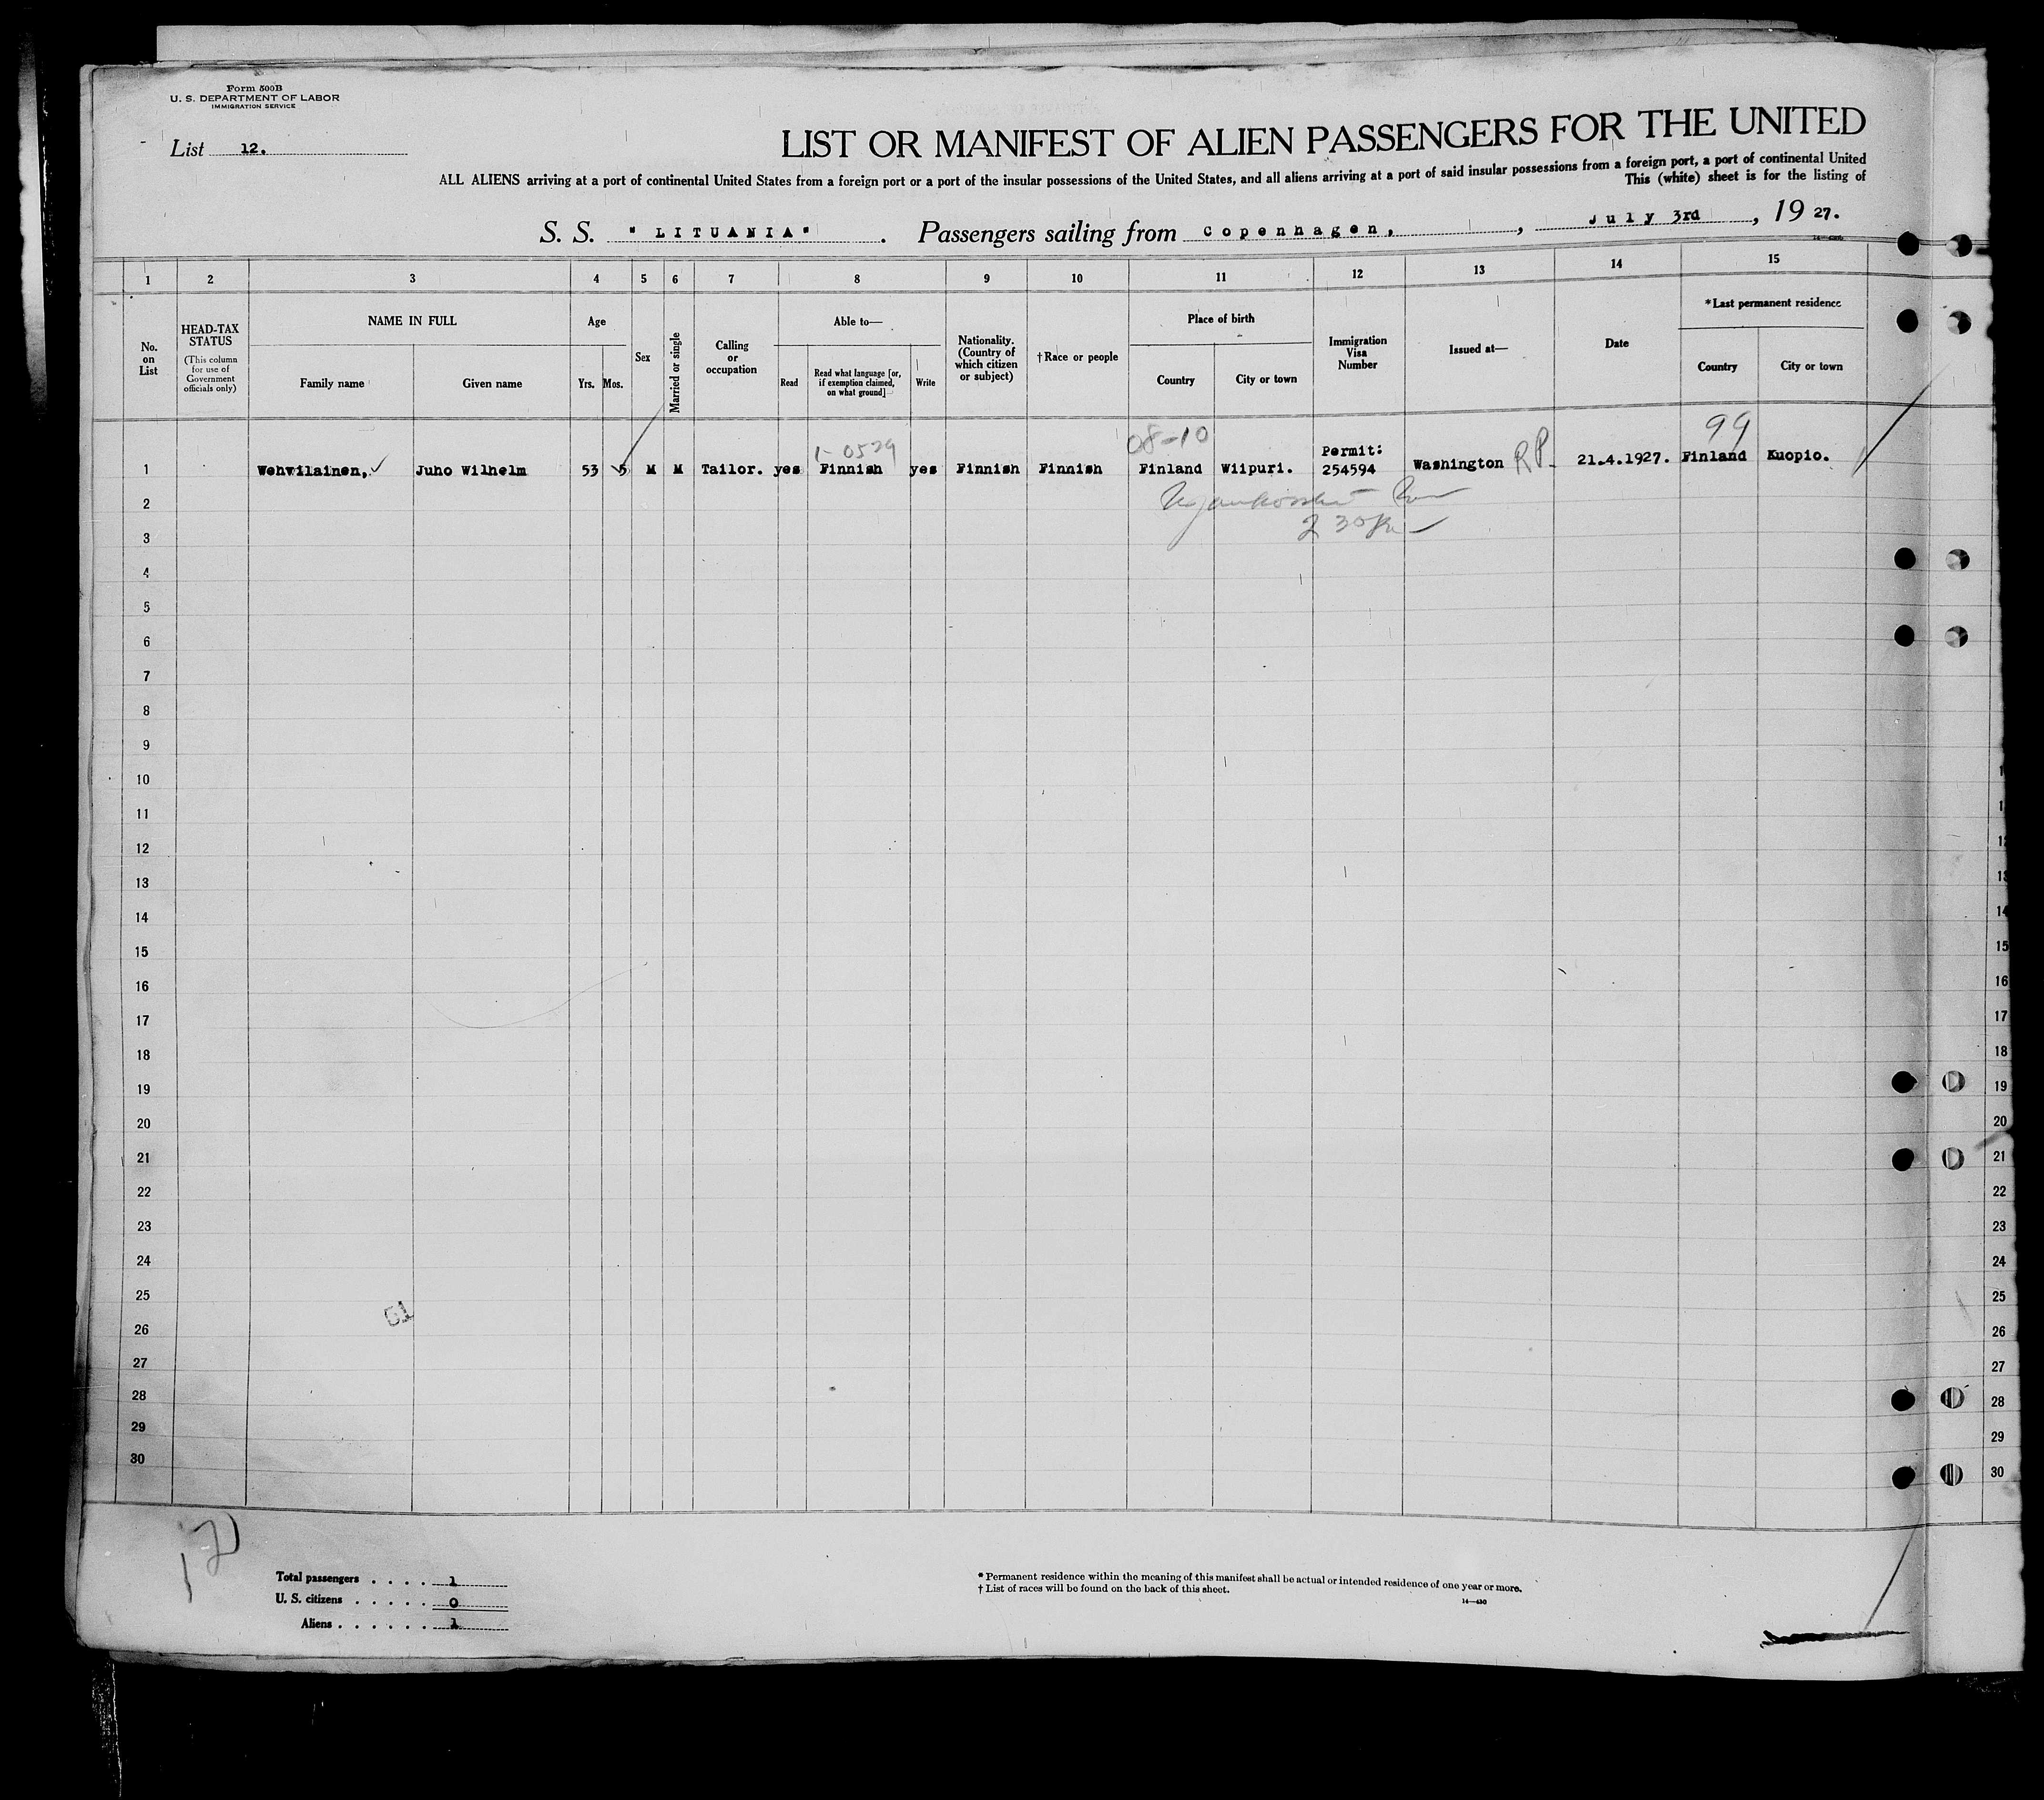 Form 500B
U. S. DEPARTMENT OF LABOR
IMMIGRATION SERVICE
List 12.
LIST OR MANIFEST OF ALIEN PASSENGERS FOR THE UNITED
ALL ALIENS arriving at a port of continental United States from a foreign port or a port of the insular possessions of the United States, and all aliens arriving at a port of said insular possessions from a foreign port, a port of continental United
This (white) sheet is for the listing of
S. S. "LITUANIA". Passengers sailing from Copenhagen, , July 3rd , 1927.
1 2 3 4 5 6 7 8 9 10 11 12 13 14 15
No. on List
HEAD-TAX STATUS
(This column for use of Government officials only)
NAME IN FULL
Family name
Given name
Age
Yrs. Mos.
Sex
Married or single
Calling or occupation
Able to—
Read
Read what language [or, if exemption claimed, on what ground]
Write
Nationality. (Country of which citizen or subject)
†Race or people
Place of birth
Country
City or town
Immigration Visa Number
Issued at—
Date
*Last permanent residence
Country
City or town
1-0529 08-10 99
1 Wehwilainen, Juho Wilhelm 53 5 M M Tailor. yes Finnish yes Finnish Finnish Finland Wiipuri. Permit: 254594 Washington RP 21.4.1927. Finland Kuopio.
2
3
4
5
6
7
8
9
10
11
12
13
14
15
16
17
18
19
20
21
22
23
24
25
26
27
28
29
30
12
13
14
15
16
17
18
19
20
21
22
23
24
25
26
27
28
29
30
51
Total passengers . . . . 1
U. S. citizens . . . . . 0
Aliens . . . . . . 1
* Permanent residence within the meaning of this manifest shall be actual or intended residence of one year or more.
† List of races will be found on the back of this sheet.
14—430